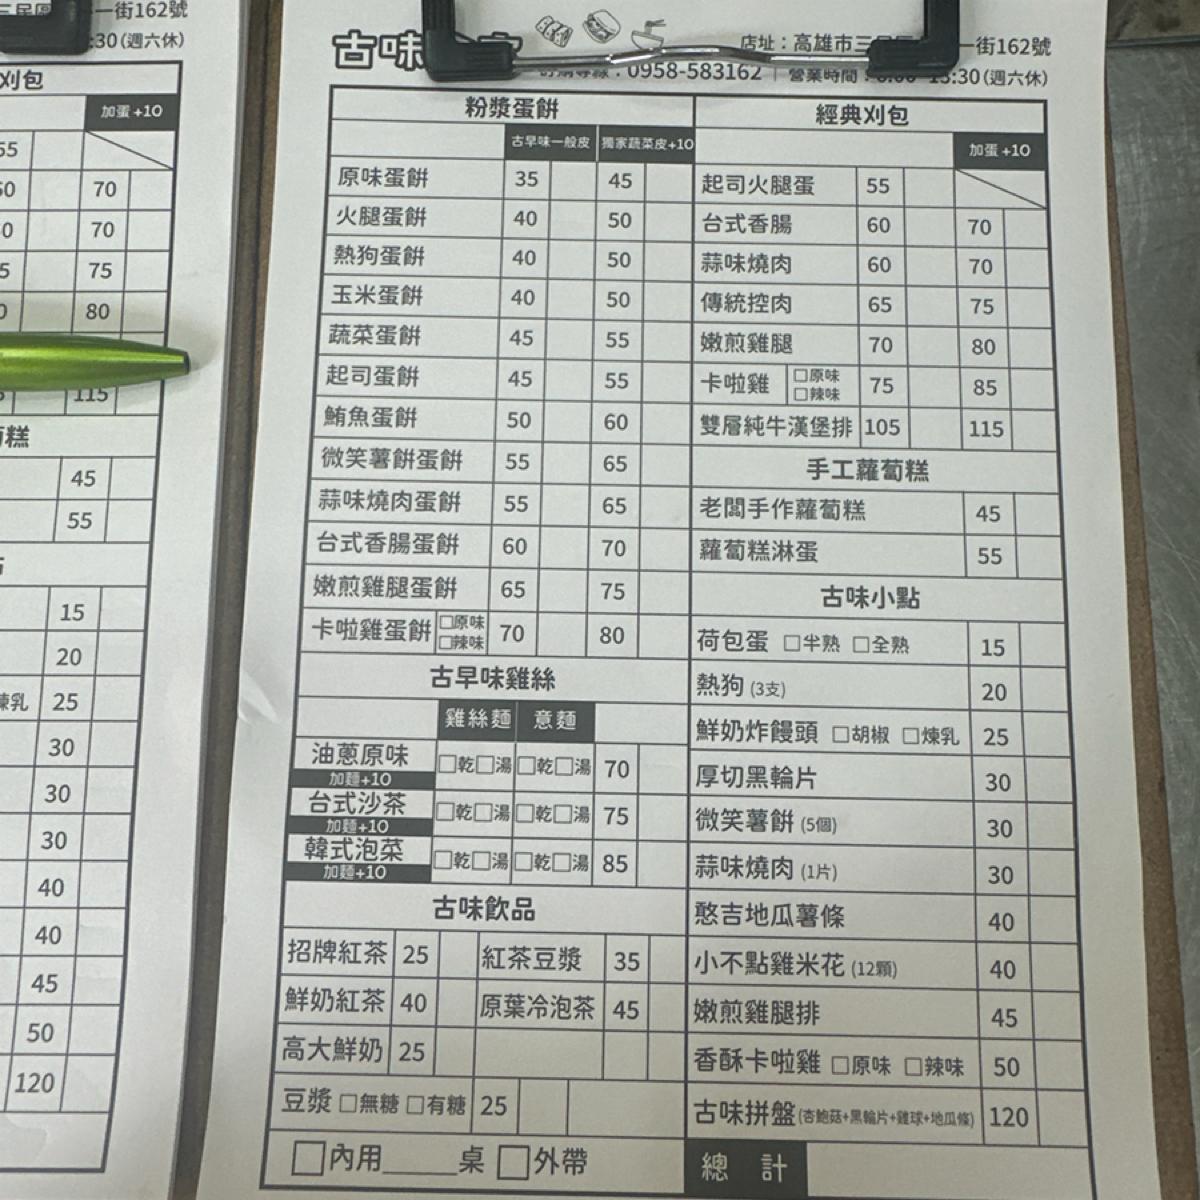 古味
店址：高雄市三民區 一街162號
訂購專線：0958-583162 | 營業時間： 13:30(週六休)
粉漿蛋餅
古早味一般皮 獨家蔬菜皮+10
原味蛋餅 35 45
火腿蛋餅 40 50
熱狗蛋餅 40 50
玉米蛋餅 40 50
蔬菜蛋餅 45 55
起司蛋餅 45 55
鮪魚蛋餅 50 60
微笑薯餅蛋餅 55 65
蒜味燒肉蛋餅 55 65
台式香腸蛋餅 60 70
嫩煎雞腿蛋餅 65 75
卡啦雞蛋餅 □原味 □辣味 70 80
古早味雞絲
雞絲麵 意麵
油蔥原味 □乾□湯 □乾□湯 70
加麵+10
台式沙茶 □乾□湯 □乾□湯 75
加麵+10
韓式泡菜 □乾□湯 □乾□湯 85
加麵+10
古味飲品
招牌紅茶 25 紅茶豆漿 35
鮮奶紅茶 40 原葉冷泡茶 45
高大鮮奶 25
豆漿 □無糖 □有糖 25
□內用_____桌 □外帶
經典刈包
加蛋+10
起司火腿蛋 55
台式香腸 60 70
蒜味燒肉 60 70
傳統控肉 65 75
嫩煎雞腿 70 80
卡啦雞 □原味 □辣味 75 85
雙層純牛漢堡排 105 115
手工蘿蔔糕
老闆手作蘿蔔糕 45
蘿蔔糕淋蛋 55
古味小點
荷包蛋 □半熟 □全熟 15
熱狗(3支) 20
鮮奶炸饅頭 □胡椒 □煉乳 25
厚切黑輪片 30
微笑薯餅(5個) 30
蒜味燒肉(1片) 30
憨吉地瓜薯條 40
小不點雞米花(12顆) 40
嫩煎雞腿排 45
香酥卡啦雞 □原味 □辣味 50
古味拼盤(杏鮑菇+黑輪片+雞球+地瓜條) 120
總計
一街162號
:30(週六休)
刈包
加蛋+10
55
70
70
75
80
115
糕
45
55
15
20
煉乳 25
30
30
30
40
40
45
50
120